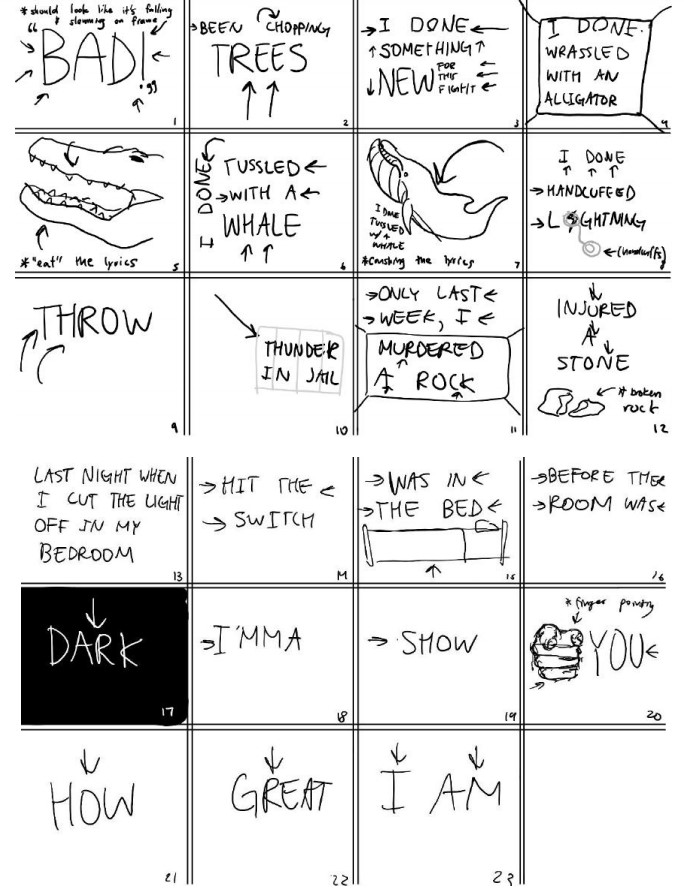 * should look like it's falling
& slamming on frame
"BAD!"
1
BEEN CHOPPING
TREES
2
I DONE
SOMETHING
NEW FOR
THIS
FIGHT
3
I DONE
WRASSLED
WITH AN
ALLIGATOR
4
* "eat" the lyrics
5
I DONE
TUSSLED
WITH A
WHALE
6
I DONE
TUSSLED
W/ A
WHALE
* Crushing the lyrics
7
I DONE
HANDCUFFED
LIGHTNING
(handcuffs)
8
THROW
9
THUNDER
IN JAIL
10
ONLY LAST
WEEK, I
MURDERED
A ROCK
11
INJURED
A
STONE
* broken
rock
12
LAST NIGHT WHEN
I CUT THE LIGHT
OFF IN MY
BEDROOM
13
HIT THE
SWITCH
14
WAS IN
THE BED
15
BEFORE THE
ROOM WAS
16
DARK
17
I'MMA
18
SHOW
19
* finger pointing
YOU
20
HOW
21
GREAT
22
I AM
23